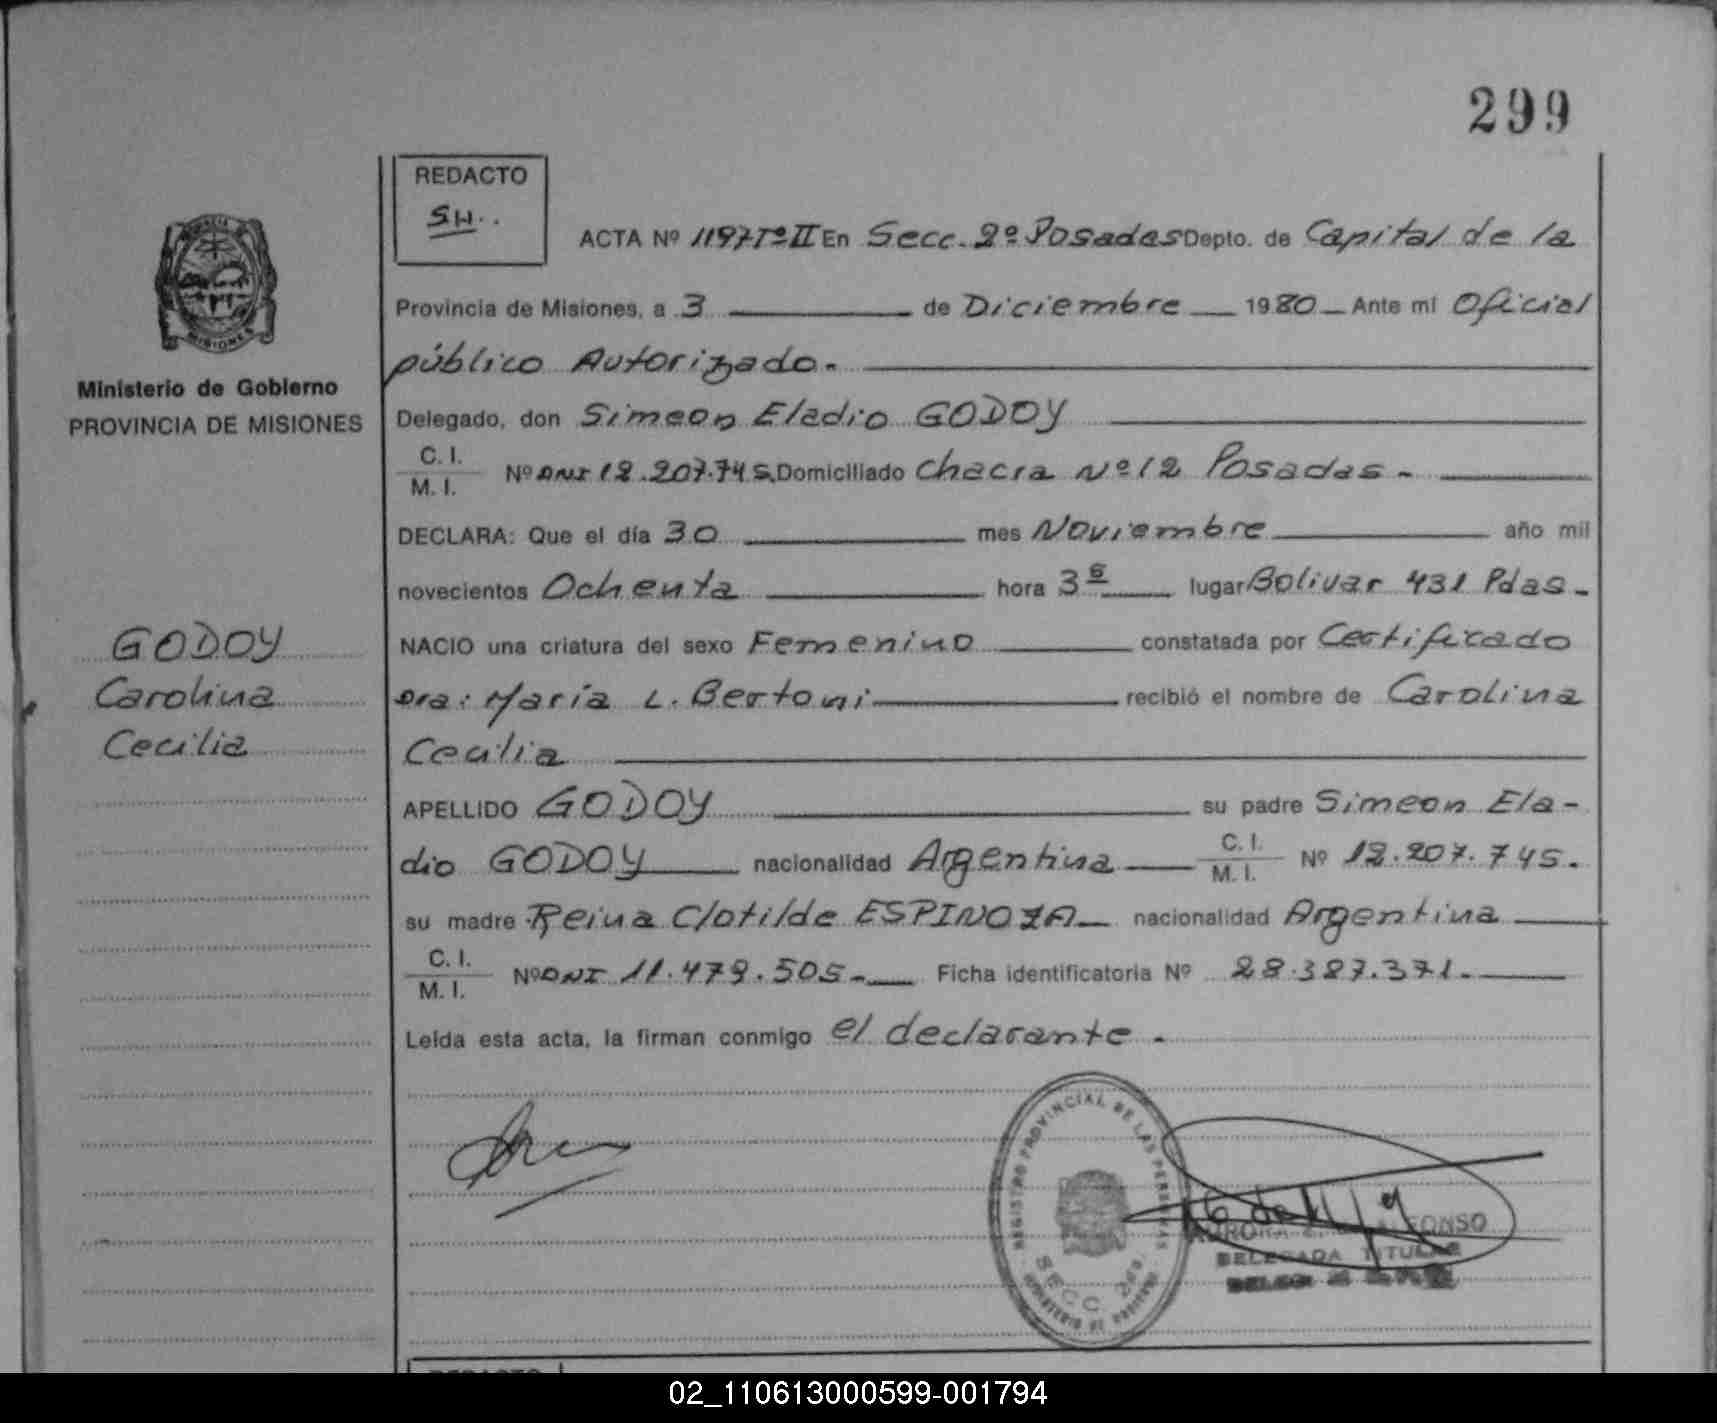 299
REDACTO
SH..
ACTA Nº 1197 Tº II En Secc. 2º Posadas Depto. de Capital de la
Provincia de Misiones, a 3 de Diciembre 1980 Ante mí Oficial
público Autorizado.
Ministerio de Gobierno
PROVINCIA DE MISIONES
Delegado, don Simeon Eladio GODOY
C. I.
M. I. Nº DNI 12.207.745 Domiciliado Chacra Nº 12 Posadas.-
DECLARA: Que el día 30 mes Noviembre año mil
novecientos Ochenta hora 3 lugar Bolivar 431 Pdas.
GODOY
Carolina
Cecilia
NACIO una criatura del sexo Femenino constatada por Certificado
Dra: María L. Bertoni recibió el nombre de Carolina
Cecilia
APELLIDO GODOY su padre Simeon Ela-
dio GODOY nacionalidad Argentina C. I.
M. I. Nº 12.207.745.
su madre Reina Clotilde ESPINOZA nacionalidad Argentina
C. I.
M. I. Nº DNI 11.479.505.- Ficha identificatoria Nº 28.387.371.-
Leída esta acta, la firman conmigo el declarante.
REGISTRO PROVINCIAL DE LAS PERSONAS
SECC. 2da.
DELEGADA TITULAR
REDACTO
02_110613000599-001794